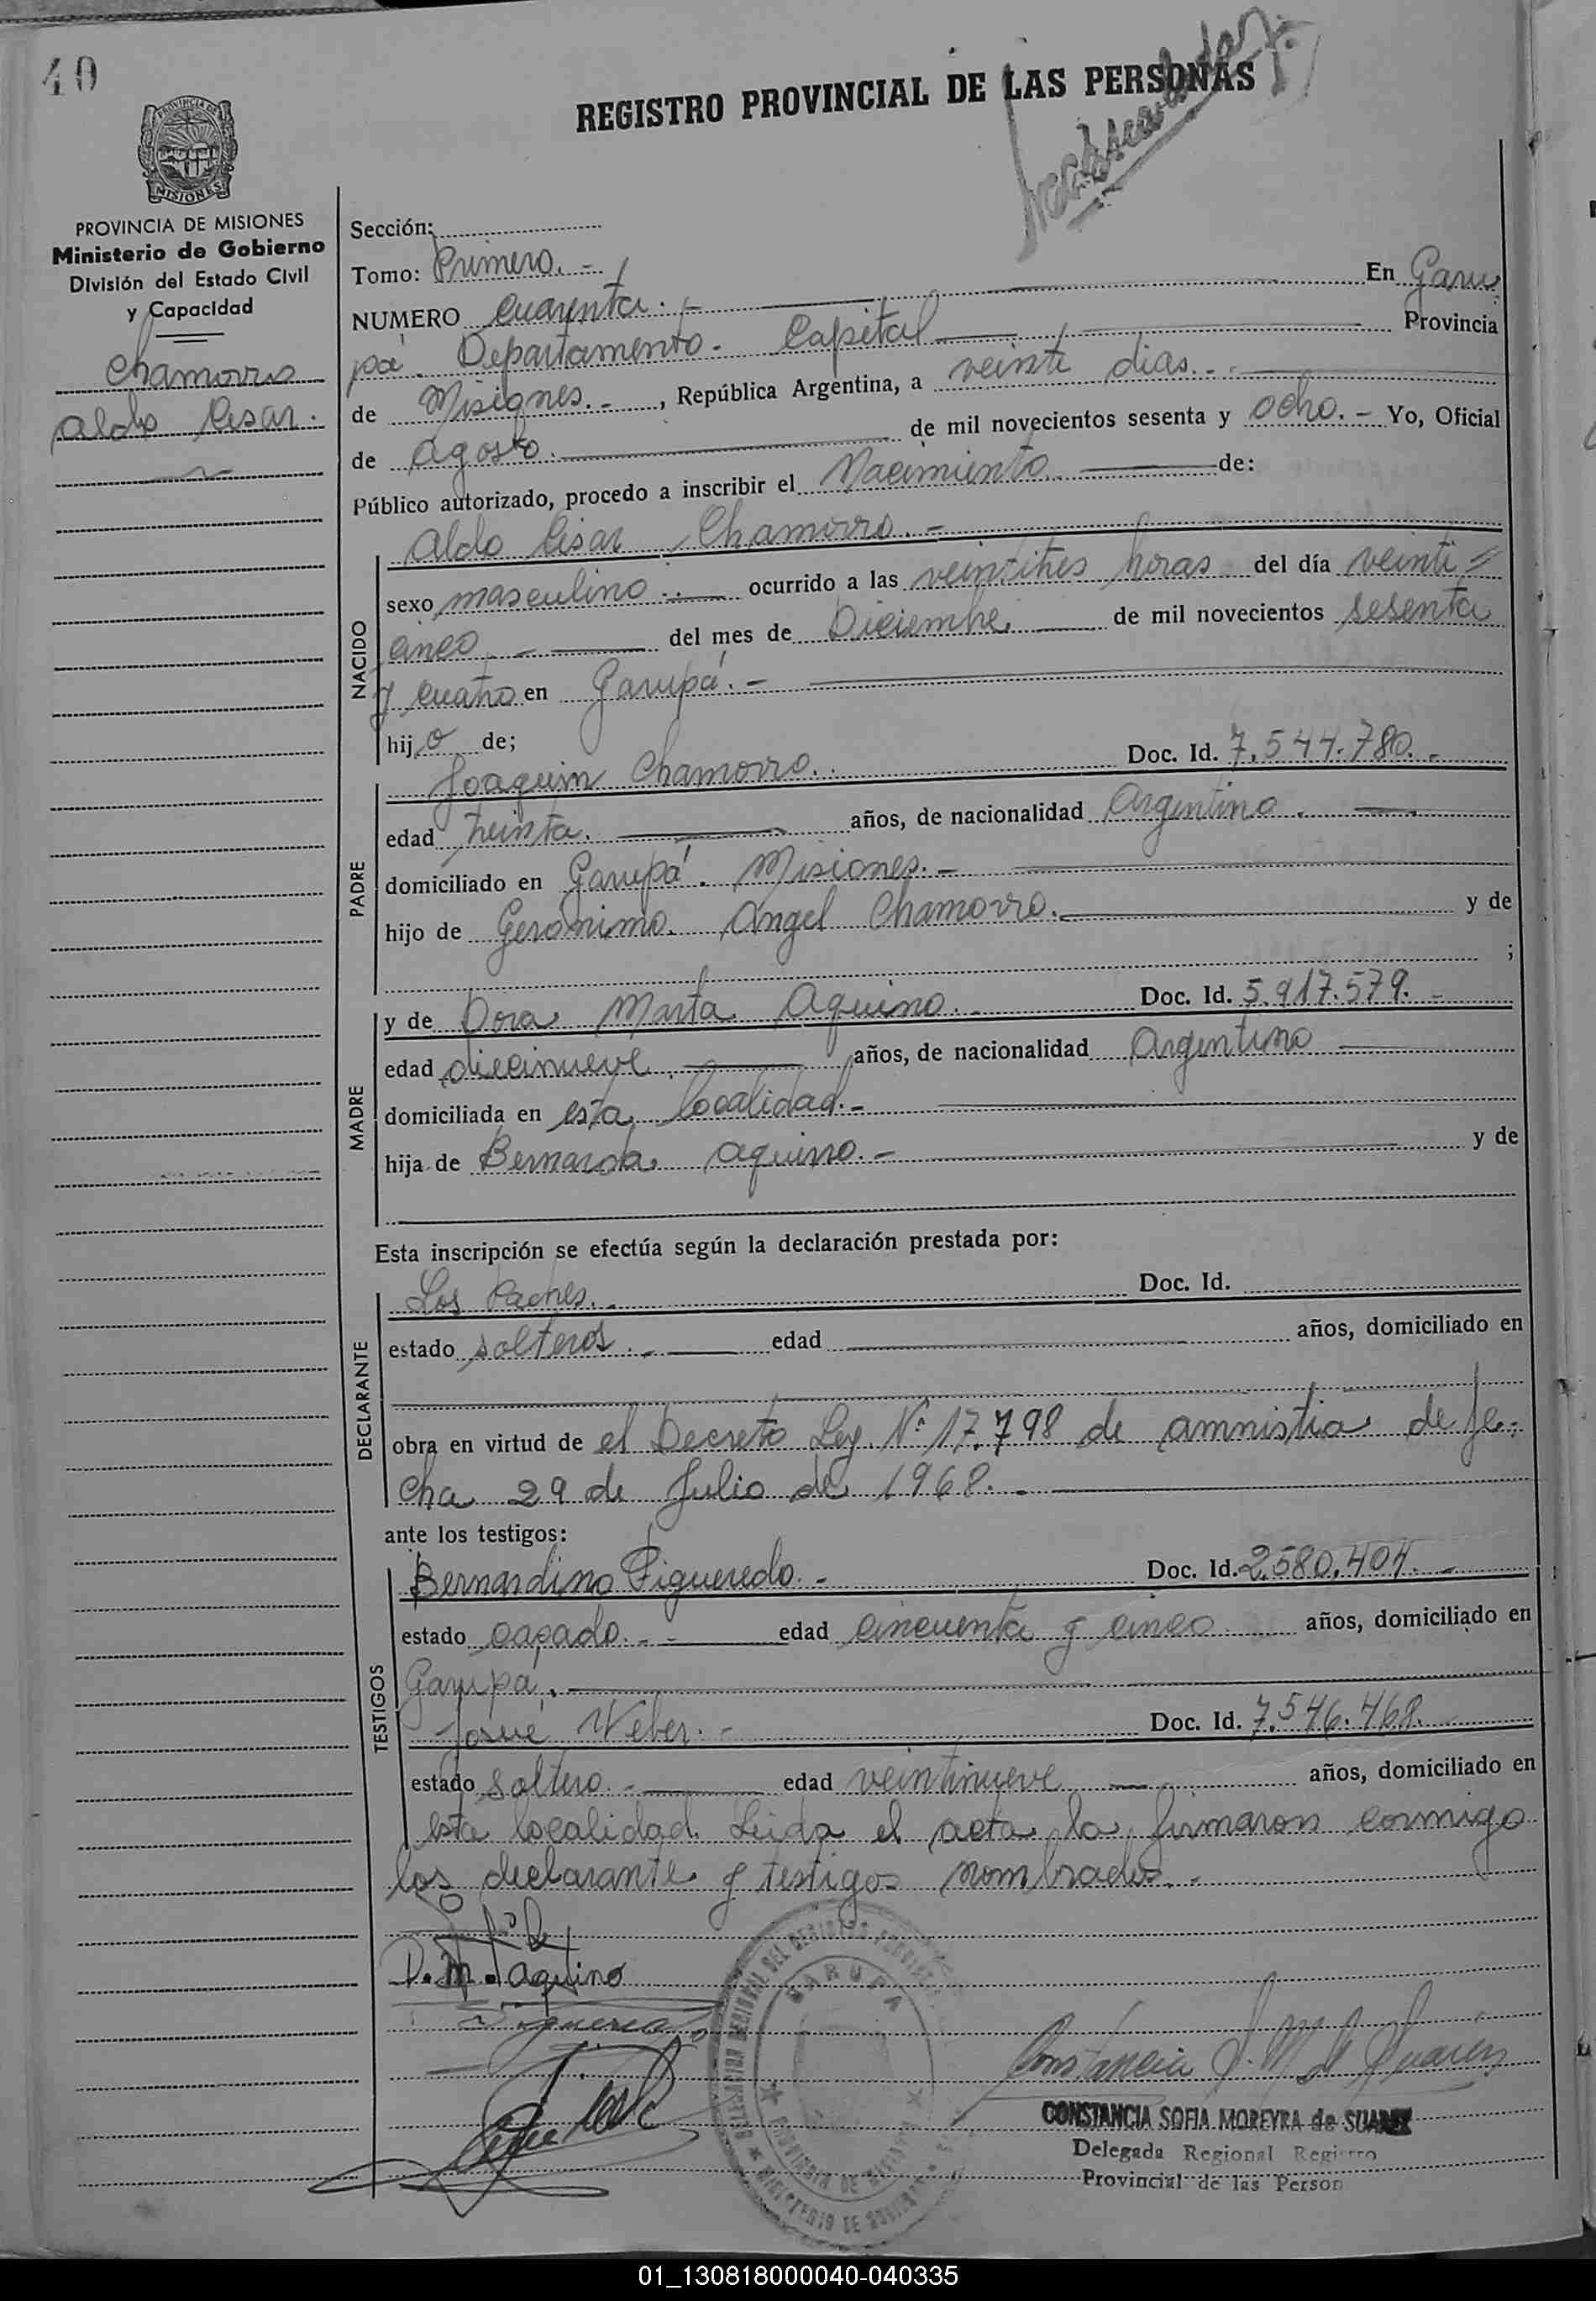 40
REGISTRO PROVINCIAL DE LAS PERSONAS
PROVINCIA DE MISIONES
PROVINCIA DE MISIONES
Ministerio de Gobierno
División del Estado Civil
y Capacidad
Chamorro
Aldo Cesar.
Sección:
Tomo: Primero.-
NUMERO Cuarenta.- En Garu
pá. Departamento. Capital Provincia
de Misiones.- , República Argentina, a veinte dias.-
de agosto. de mil novecientos sesenta y ocho.- Yo, Oficial
Público autorizado, procedo a inscribir el Nacimiento de:
Aldo Cesar Chamorro.-
NACIDO
sexo masculino.- ocurrido a las veintitres horas del día veinti=
cinco.- del mes de Diciembre. de mil novecientos sesenta
y cuatro en Garupá.-
hijo de;
PADRE
Joaquin Chamorro. Doc. Id. 7.544.780.-
edad treinta. años, de nacionalidad Argentino.
domiciliado en Garupá. Misiones.-
hijo de Gerónimo Angel Chamorro. y de
;
MADRE
y de Dora Marta Aquino. Doc. Id. 5.917.579.-
edad diecinueve años, de nacionalidad Argentina
domiciliada en esta localidad.-
hija de Bernarda Aquino.- y de
Esta inscripción se efectúa según la declaración prestada por:
DECLARANTE
Los Padres. Doc. Id.
estado solteros.- edad años, domiciliado en
obra en virtud de el Decreto Ley Nº 17.798 de amnistia de fe-
cha 29 de Julio de 1968.-
ante los testigos:
TESTIGOS
Bernardino Figueredo.- Doc. Id. 2.580.404.-
estado casado.- edad cincuenta y cinco años, domiciliado en
Garupá.
Josué Weber.- Doc. Id. 7.546.468.
estado soltero.- edad veintinueve años, domiciliado en
esta localidad. Leida el acta la firmaron conmigo
los declarante y testigos nombrados.-
D. M. aquino
GARUPA
PROVINCIA DE MISIONES
MINISTERIO DE GOBIERNO
Constancia S. M. de Suarez
CONSTANCIA SOFIA MOREYRA de SUAREZ
Delegada Regional Registro
Provincial de las Person
01_130818000040-040335